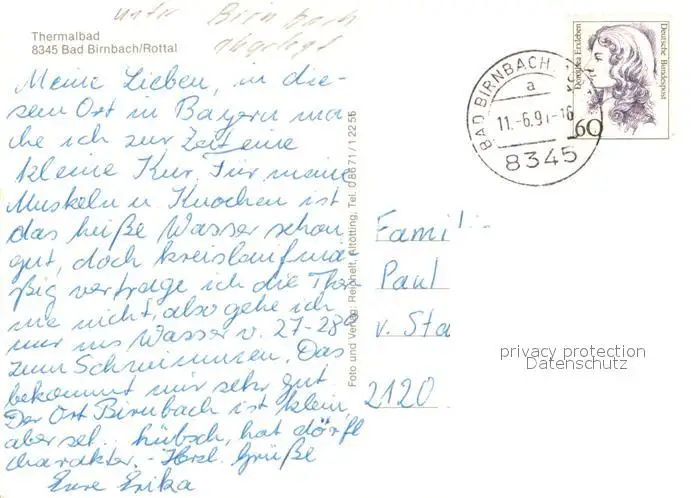 unter Birnbach
abgelegt
Thermalbad
8345 Bad Birnbach/Rottal
Meine Lieben, in die-
sem Ort in Bayern ma
che ich zur Zeit eine
kleine Kur. Für meine
Muskeln u. Knochen ist
das heiße Wasser schon
gut, doch kreislaufmä
ßig vertrage ich die Ther
me nicht, also gehe ich
nur ins Wasser v. 27-28°
zum Schwimmen. Das
bekommt mir sehr gut.
Der Ort Birnbach ist klein,
aber sehr hübsch, hat dörfl
charakter. - Herzl. Grüße
Eure Erika
Foto und Verlag: Reichelt, Altötting, Tel. 08671/12256
BAD BIRNBACH
a
11.-6.91-16
8345
Dorothea Erxleben
Deutsche Bundespost
60
Famil
Paul
v. Sta
2120
privacy protection
Datenschutz